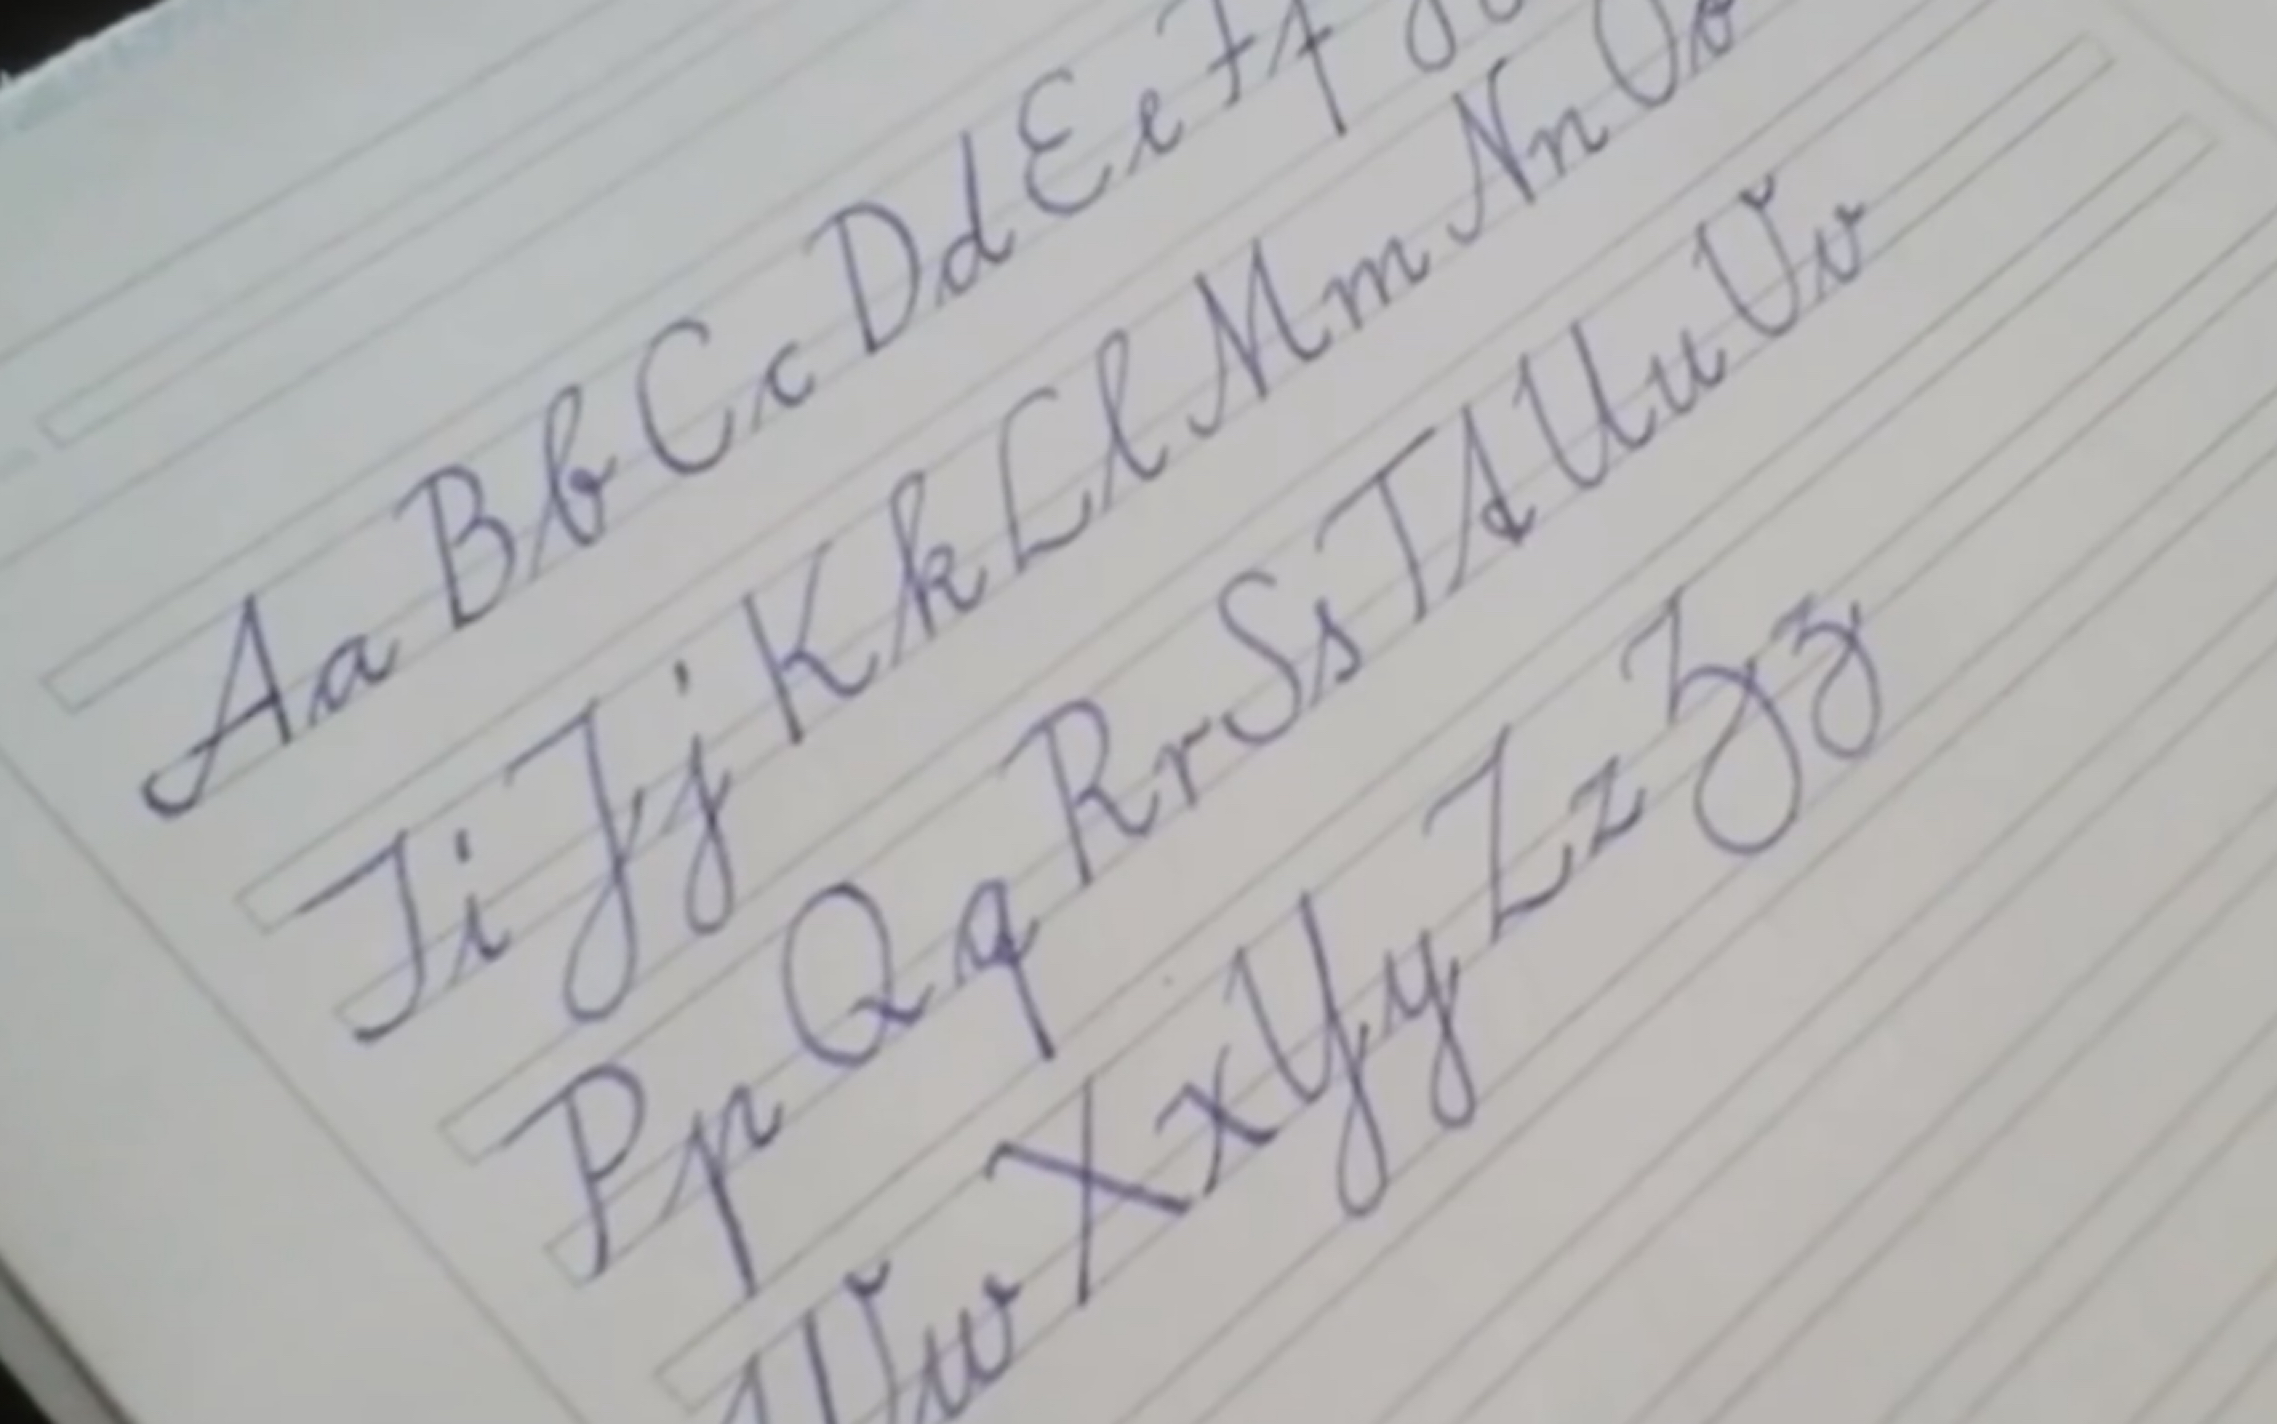 Aa Bb Cc Dd Ee Ff
Ii Jj Kk Ll Mm Nn Oo
Pp Qq Rr Ss Tt Uu Vv
Ww Xx Yy Zz Zz